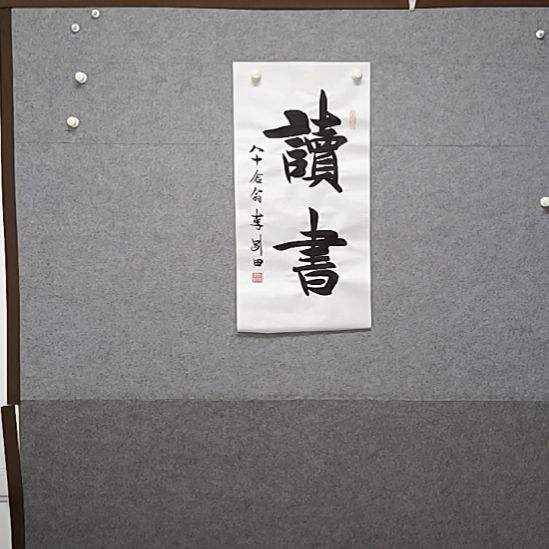 讀書
八十合翁李剛田